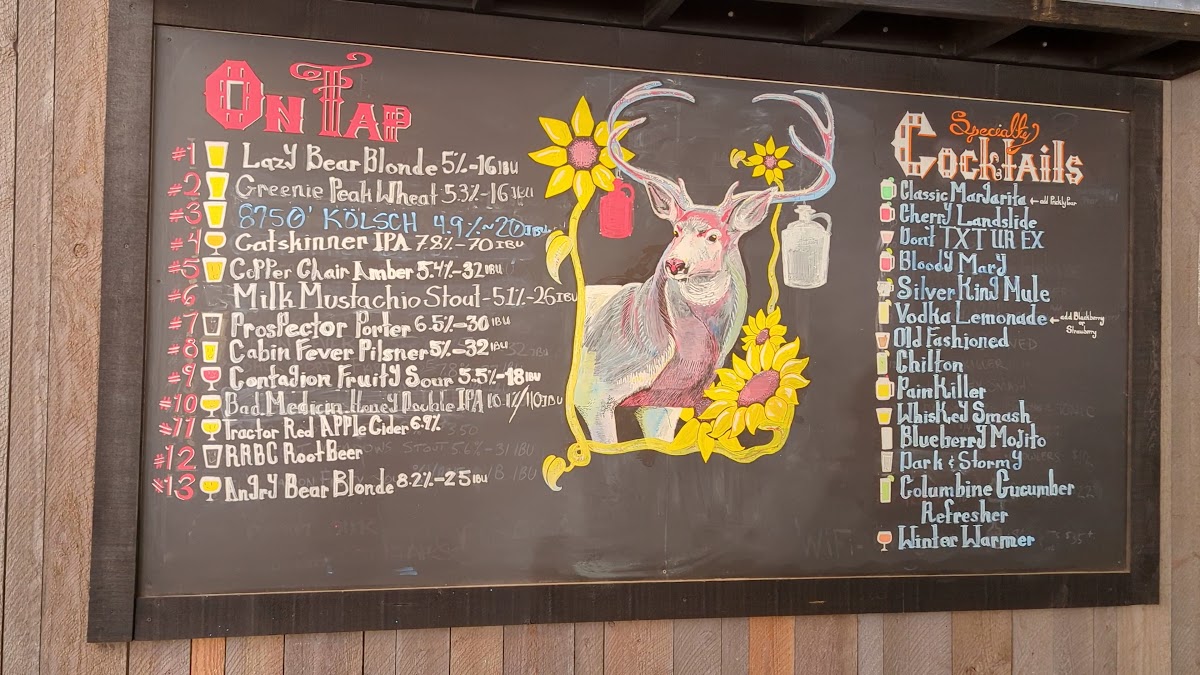 On Tap
#1 Lazy Bear Blonde 5%-16 IBU
#2 Greenie Peak Wheat 5.3%-16 IBU
#3 8750' KÖLSCH 4.9%~20 IBU
#4 Gatskinner IPA 7.8%-70 IBU
#5 Copper Chair Amber 5.4%-32 IBU
#6 Milk Mustachio Stout-5.1%-26 IBU
#7 Prospector Porter 6.5%-30 IBU
#8 Cabin Fever Pilsner 5%-32 IBU
#9 Contagion Fruity Sour 5.5%-18 IBU
#10 Bad Medicin Honey Double IPA
#11 Tractor Red APPle Cider 6.9%
#12 RRBC Root Beer
#13 Angry Bear Blonde 8.2%-25 IBU
Specialty
Cocktails
Classic Margarita ← add Prickly Pear
Cherry Landslide
Don't TXT UR EX
Bloody Mary
Silver King Mule
Vodka Lemonade ← add Blackberry
or
Strawberry
Old Fashioned
Chilton
PainKiller
Whiskey Smash
Blueberry Mojito
Dark & Stormy
Columbine Cucumber
Refresher
Winter Warmer